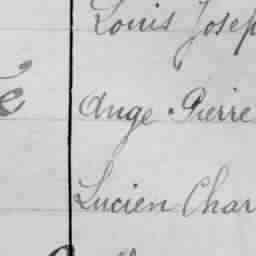 Louis Josep
Ange . Pierre
Lucien Char